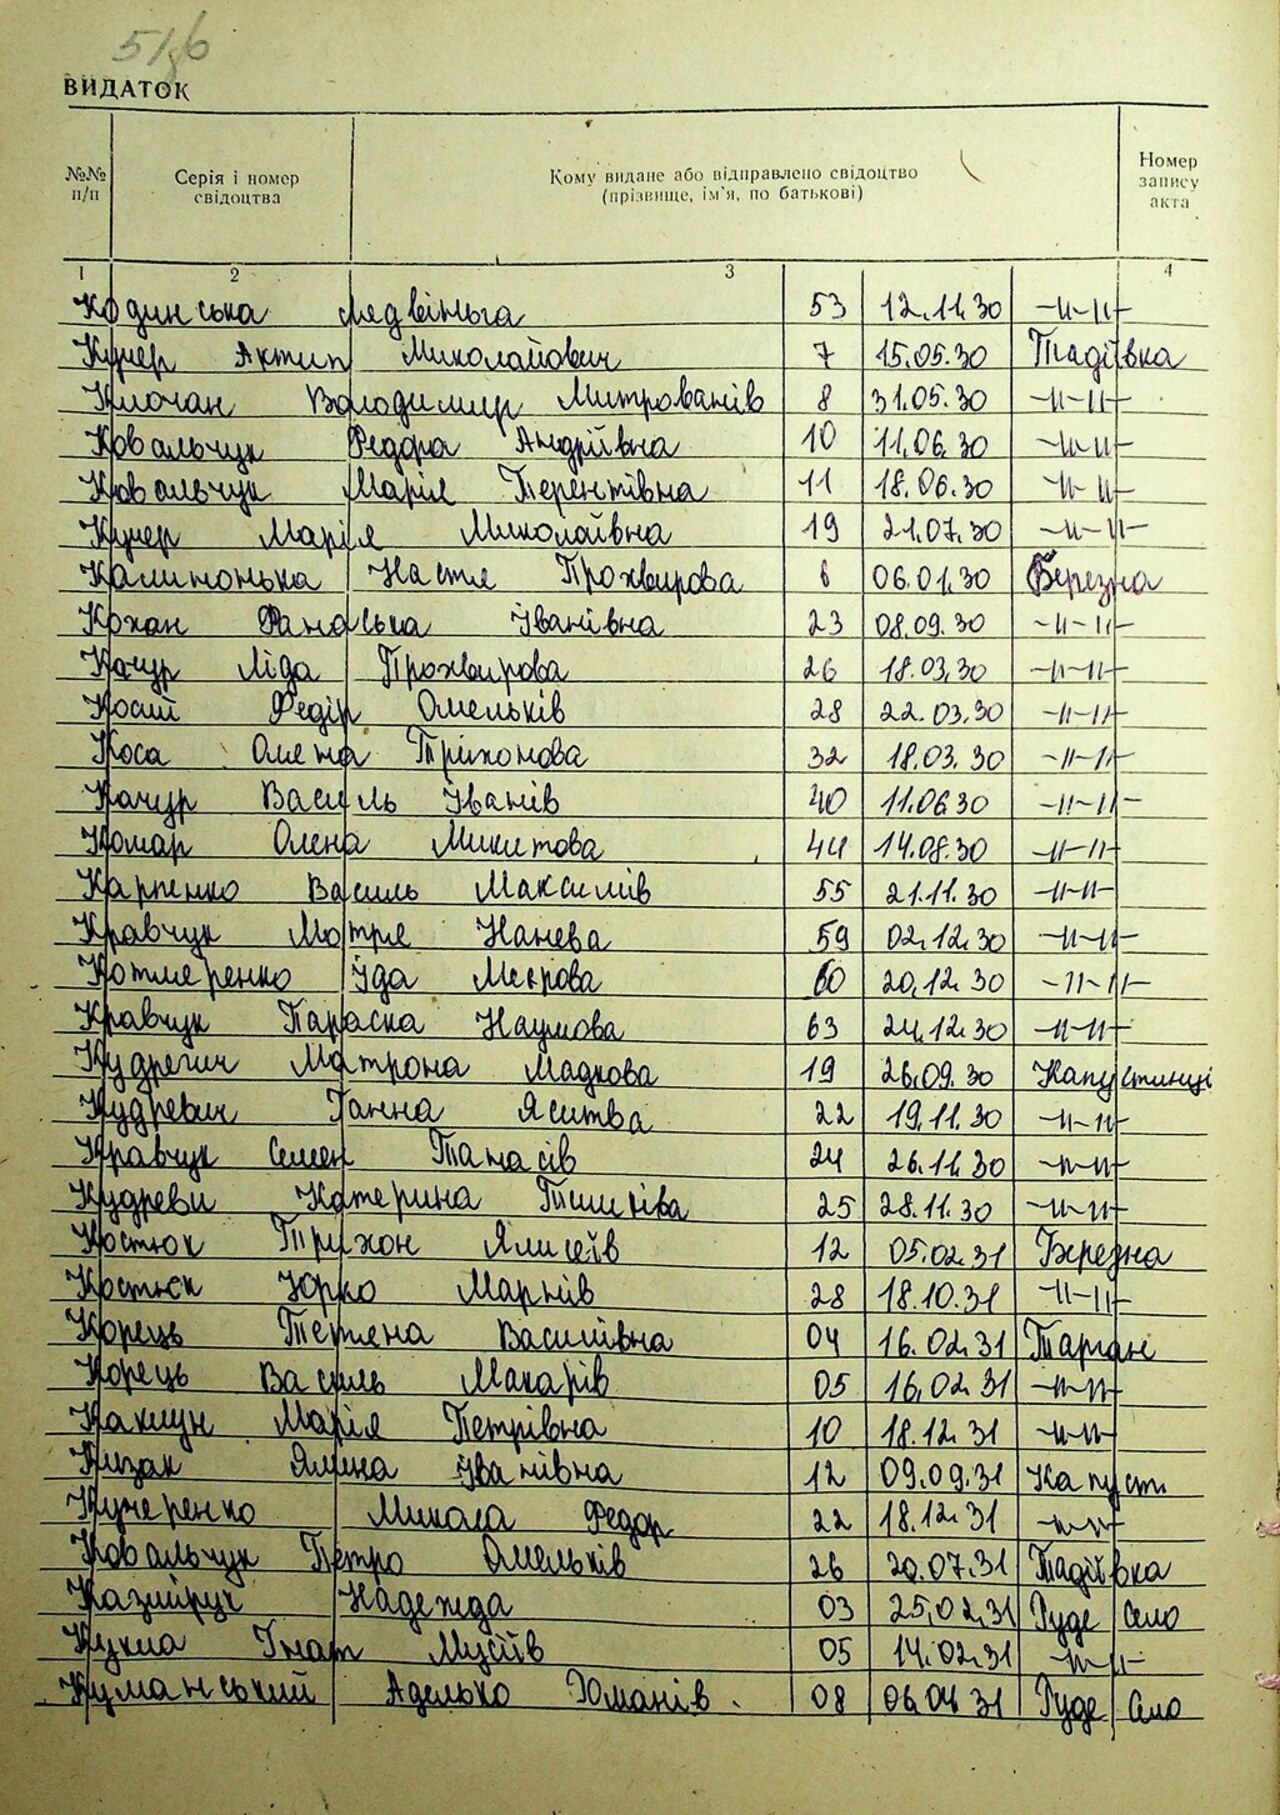 ВИДАТОК
№№ п/п
Серія і номер свідоцтва
Кому видане або відправлено свідоцтво (прізвище, ім'я, по батькові)
Номер запису акта
1 2 3 4
Кодинська Ледвіньга 53 12.11.30 -"-"-
Кучер Актип Миколайович 7 15.05.30 Тадіївка
Клочан Володимир Митрованів 8 31.05.30 -"-"-
Ковальчук Федора Андріївна 10 11.06.30 -"-"-
Ковальчук Марія Терентівна 11 18.06.30 -"-"-
Кучер Марія Миколаївна 19 21.07.30 -"-"-
Калиионька Настя Прохвирова 6 06.01.30 Березна
Кохан Фанаська Іванівна 23 08.09.30 -"-"-
Качур Ліда Прохвирова 26 18.03.30 -"-"-
Косий Федір Омельків 28 22.03.30 -"-"-
Коса Олена Тріхонова 32 18.03.30 -"-"-
Качур Василь Іванів 40 11.06.30 -"-"-
Комар Олена Микитова 44 14.08.30 -"-"-
Карпенко Василь Максимів 55 21.11.30 -"-"-
Кравчук Мотря Нанева 59 02.12.30 -"-"-
Котмеренко Іда 60 20.12.30 -"-"-
Кравчук Параска Наумова 63 24.12.30 -"-"-
Кудревич Матрона Мадкова 19 26.09.30 Капустинці
Кудревич Ганна 22 19.11.30 -"-"-
Кравчук Семен Танасів 24 26.11.30 -"-"-
Кудреви Катерина 25 28.11.30 -"-"-
Костюк Трихон Ялисеїв 12 05.02.31 Березна
Костюк Юрко Марків 28 18.10.31 -"-"-
Корець Тетяна Василівна 04 16.02.31 Тарган
Корець Василь Макарів 05 16.02.31 -"-"-
Какмун Марія Петрівна 10 18.12.31 -"-"-
Кизак Ялина Іванівна 12 09.09.31 Капусти
Кучеренко Микола Федор 22 18.12.31 -"-"-
Ковальчук Петро Омельків 26 20.07.31 Тадіївка
Казмірук Надежда 03 25.02.31 Руде Село
Кукла Гнат Мусіїв 05 14.02.31 -"-"-
Куманський Аделько Романів. 08 06.04.31 Руде Село